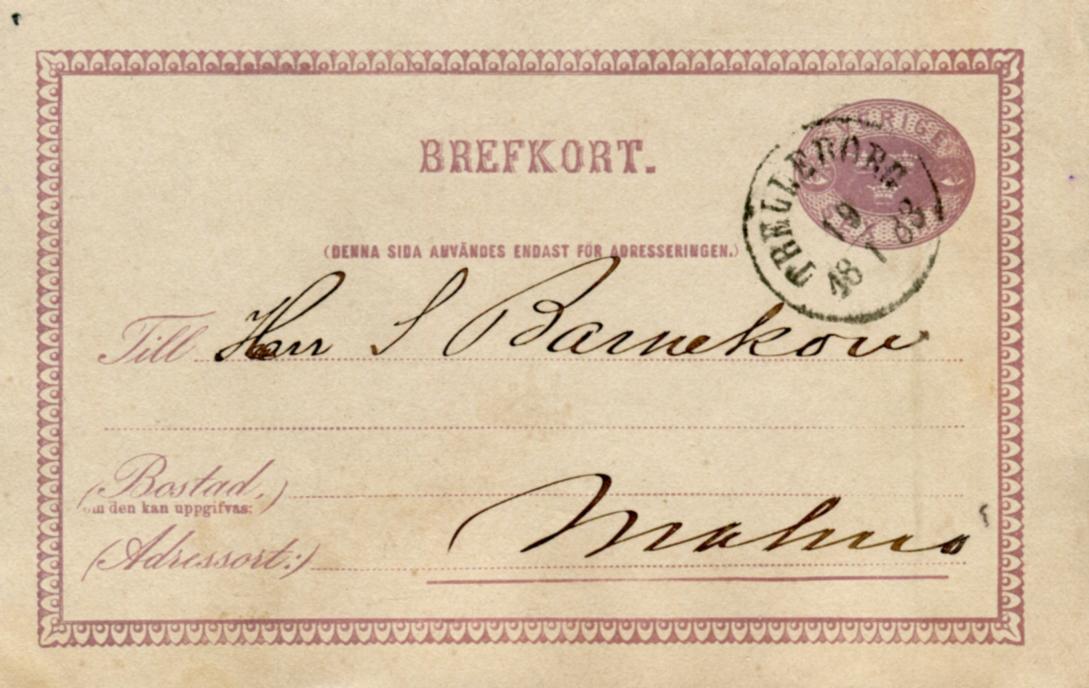 BREFKORT.
SVERIGE
TRELLEBORG
19
18 1 83
(DENNA SIDA ANVÄNDES ENDAST FÖR ADRESSERINGEN.)
Till Herr S Barnekow
(Bostad,)
om den kan uppgifvas:
Malmö
(Adressort:)